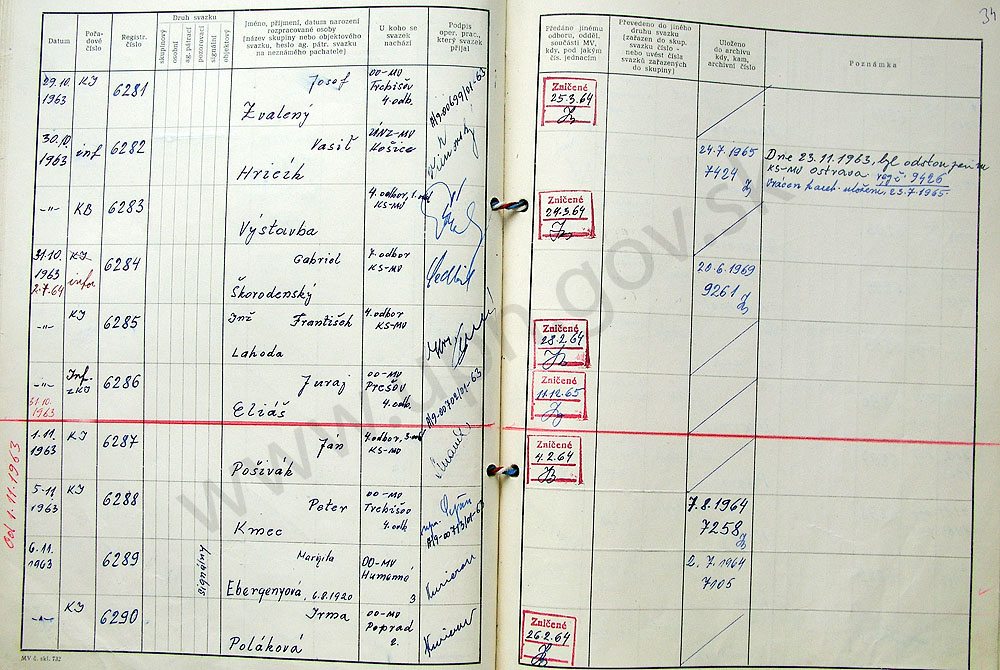 34
Datum
Pořadové číslo
Registr. číslo
Druh svazku
skupinový
osobní
ag. pátrací
pozorovací
signální
objektový
Jméno, příjmení, datum narození
rozpracované osoby
(název skupiny nebo objektového
svazku, heslo ag. pátr. svazku
na neznámého pachatele)
U koho se
svazek
nachází
Podpis
oper. prac.,
který svazek
přijal
Předáno jinému
odboru, odděl.
součásti MV,
kdy, pod jakým
čís. jednacím
Převedeno do jiného
druhu svazku
(zařazen do skup.
svazku číslo -
nebo uvést čísla
svazků zařazených
do skupiny)
Uloženo
do archivu
kdy, kam,
archivní číslo
Poznámka
29.10. 1963
KI
6281
Josef
Zvalený
OO-MV
Trebišov
4. odb.
A/9-00699/01-63
Zničené
25.3.64
30.10. 1963
inf
6282
Vasiľ
Hricik
ÚNZ-MV
Košice
24.7.1965
7424
Dne 23.11.1963, byl odstoupen na
KS-MV Ostrava reg č 9426
-"-
KB
6283
Výstavba
4. odbor, 1. odd
KS-MV
Zničené
24.3.64
31.10. 1963
2.7.64
KI
infor
6284
Gabriel
Škorodenský
7. odbor
KS-MV
20.6.1969
9261
-"-
KI
6285
Inž František
Lahoda
4. odbor
KS-MV
Zničené
28.2.64
-"-
31.10. 1963
Inf.
zKI
6286
Juraj
Eliáš
OO-MV
Prešov
4. odb.
A/9-00702/01-63
Zničené
11.12.65
Od 1.11.1963
1.11. 1963
KI
6287
Jan
Pošivák
4. odbor, 3.
KS-MV
Zničené
4.2.64
5.11 1963
KI
6288
Peter
Kmec
OO-MV
Trebišov
4. odb
A/9-00713/01-63
7.8.1964
7258
6.11. 1963
6289
signálny
Margita
Ebergenyová, 6.8.1920
OO-MV
Humenné
3
2.7.1964
7105
-"-
KI
6290
Irma
Poláková
OO-MV
Poprad
2.
Zničené
26.2.64
MV č. skl. 732
www.upn.gov.sk